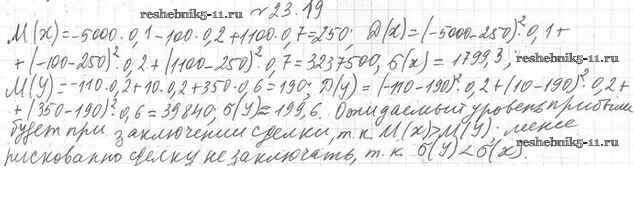 №23.19
reshebnik5-11.ru
M(x)=-5000·0,1-100·0,2+1100·0,7=250; D(x)=(-5000-250)²·0,1+
+(-100-250)²·0,2+(1100-250)²·0,7=3237500, б(x)=1799,3;
reshebnik5-11.ru
M(y)=-110·0,2+10·0,2+350·0,6=190; D(y)=(-110-190)²·0,2+(10-190)²·0,2+
+(350-190)²·0,6=39840; б(y)≈199,6. Ожидаемый уровень прибыли
reshebnik5-11.ru
будет при заключении сделки, т.к. M(x)>M(y). менее
рискованно сделку не заключать, т.к. б(y)<б(x).
reshebnik5-11.ru